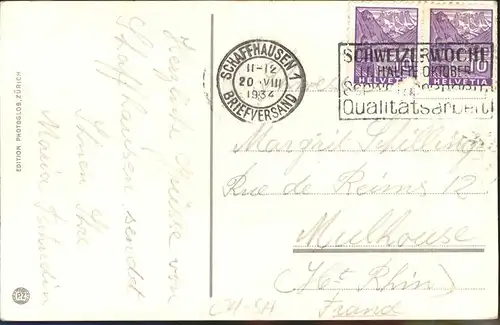 EDITION PHOTOGLOB, ZÜRICH
Herzliche Grüsse von
Schaffhausen sendet
Ihnen Ihre
Maria
PZ
SCHAFFHAUSEN 1
11-12
20.VIII
1934
BRIEFVERSAND
SCHWEIZERWOCHE
HÄLFTE OKTOBER
Qualitätsarbeit!
HELVETIA
10
HELVETIA
Margrit Schilling
Rue de Reims 12
Mulhouse
(Ht Rhin)
CH-SH